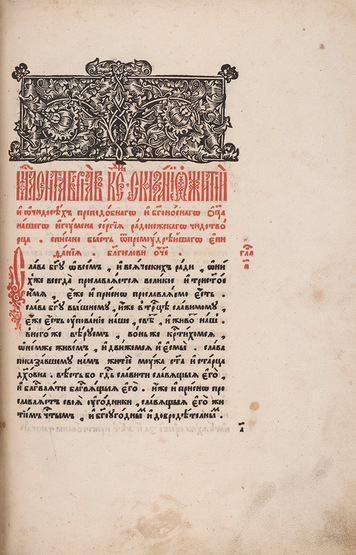 и ѡ чюдесѣхъ преподобнагѡ и бг҃оноснагѡ ѻц҃а
нашегѡ игꙋмена сергїа радонежскагѡ чюдотво
рца . списано бысть ѿ премꙋдрѣишагѡ епи
фанїа . благослови ѻч҃е .
Слава бг҃ꙋ ѡ всемъ , и всяческихъ ради , ѡ ни
хже всегда прославляется великое и трист҃ое
имя , еже и присно прославляемо есть .
слава бг҃ꙋ вышнемꙋ , иже в трц҃е славимомꙋ
еже есть ѹпованїе наше , свѣтъ , и животъ нашъ
в негоже вѣрꙋемъ , вонь же крт҃ихомся ,
ѡ немже живемъ , и движемся и есмы . слава
показавшемꙋ намъ житїе мꙋжа ст҃а и старца
дх҃овна . вѣсть бо гд҃ь славити славящыя его
и блг҃вляти блг҃вящыя его . иже и присно про
славляетъ своя ѹгодники , славящыя его жи
тїемъ чт҃ымъ , и бг҃оугоднымъ и добродѣтелнымъ .